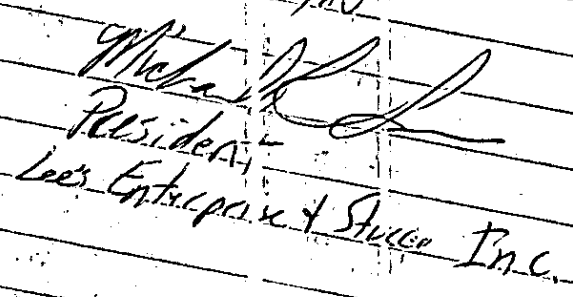 Michael
President
Lee's Enterprise & Stucco Inc.